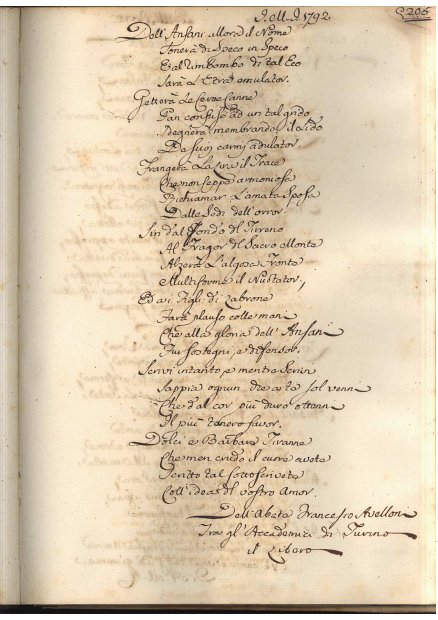 I. M. I. 1792
205
Dell'Ansani allora il Nome
Tonerà di Speco in Speco
E al rimbombo di tal Eco
Sarà L'Etra emulator.
Getterà Le Cerae Canne
Pan confuso ad un tal grido
Sdegnerà membrando il Lido
De suoi carmi adulator.
Frangerà La Lira il Trace
Che non seppe armoniosa
Richiamar L'amata Sposa
Dalle Sedi dell'orror.
Sin dal fondo del Tirreno
Al Fragor del Sacro Monte
Alzerà L'algosa Fronte
Multiforme il Nuotator,
Ed ai Figli di
Farà plauso colle mani
Che alla gloria dell'Ansani
Fur sostegni, e difensor.
Scrivi intanto, e mentre Scrivi
Sappia ognun che arte sol venne
Che dal cor più duro ottenne
Il più tenero favor.
Dolci e Barbare Tiranne
Che men crudo il cuore avete
Scritto tal sottoscrivete
Coll'idea del vostro Amor.
Dell'Abate Francesco Avelloni
Tra gl'Accademici di Turino
il Libero